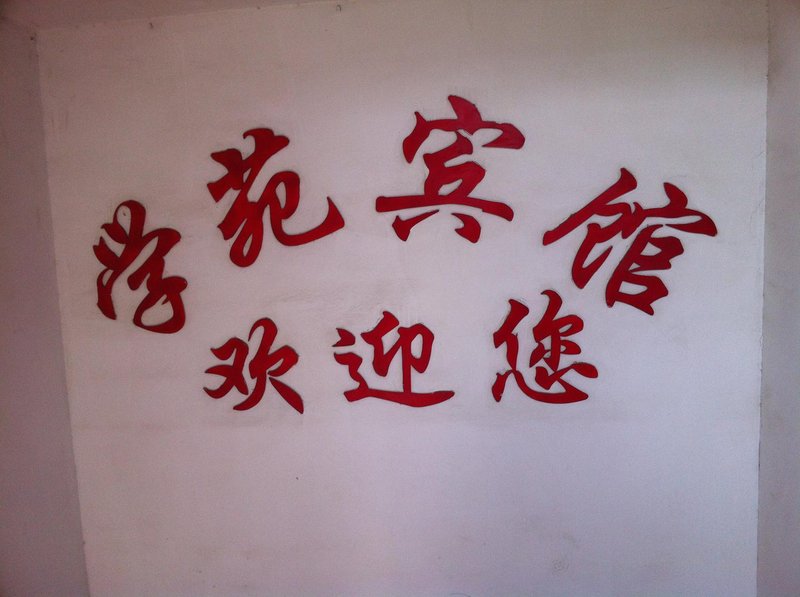 学苑宾馆
欢迎您